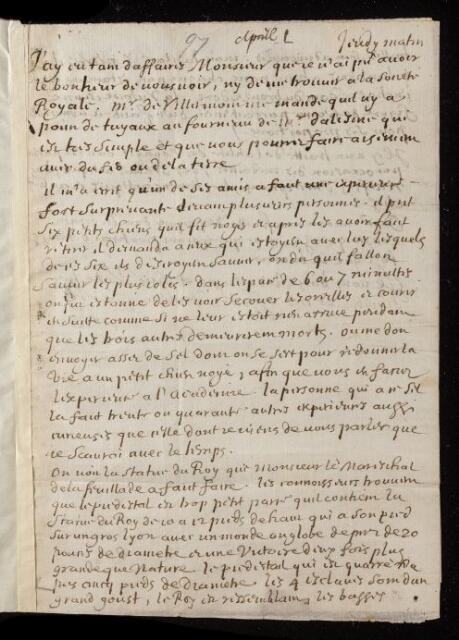 97 Aprill 1 Jeudy matin
J'ay eu tant d'affaires Monsieur que ie n'ai peu avoir
le bonheur de vous voir, ny de me trouver a la Societe
Royale, mr. de Villermont me mande quil ny a
point de tuyaux au fourneau de mr. dalesme qui
est tres simple et que vous pourres faire aisement
avec du fer ou de la terre
il m'a écrit qu'un de ses amis a faut une experience
fort surprenante devant plusieurs personnes. il prit
six petits chiens quil fit noyer et apres les avoir faut
retirer il demanda a ceux qui estoyent avec luy lesquels
de ces six ils desiroyent sauver, on dit quil falloit
sauver les plus iolis. dans l'espace de 6 ou 7 minuttes
on fut estonné de les voir secouer les oreilles et courir
en suitte comme si ne leur estoit rien arrivé pendant
que les trois autres demeurerent morts. on me doit
envoyer assez de sel dont on se sert pour redonner la
vie a un petit chien noyé, afin que vous en fassiez
l'experience a l'academie. la personne qui a ce sel
la faut trente ou quarante autres experiences aussy
curieuses que celle dont ie viens de vous parler que
ie sçauroi avec le temps.
On voit la statue du Roy que Monsieur le Mareschal
de la feuillade a faut faire. les connoisseurs trouvent
que le piedestal est trop petit parce quil contient la
statue du Roy de 10 a 12 pieds de haut qui a son pied
sur un gros lyon avec un monde ou globe de prez de 20
pouces de diametre et une Victoire deux fois plus
grande que nature. le piedestal qui est quarré n'a
pas cinq pieds de diametre. les 4 esclaves sont d'un
grand goust, le Roy est ressemblant, les basses